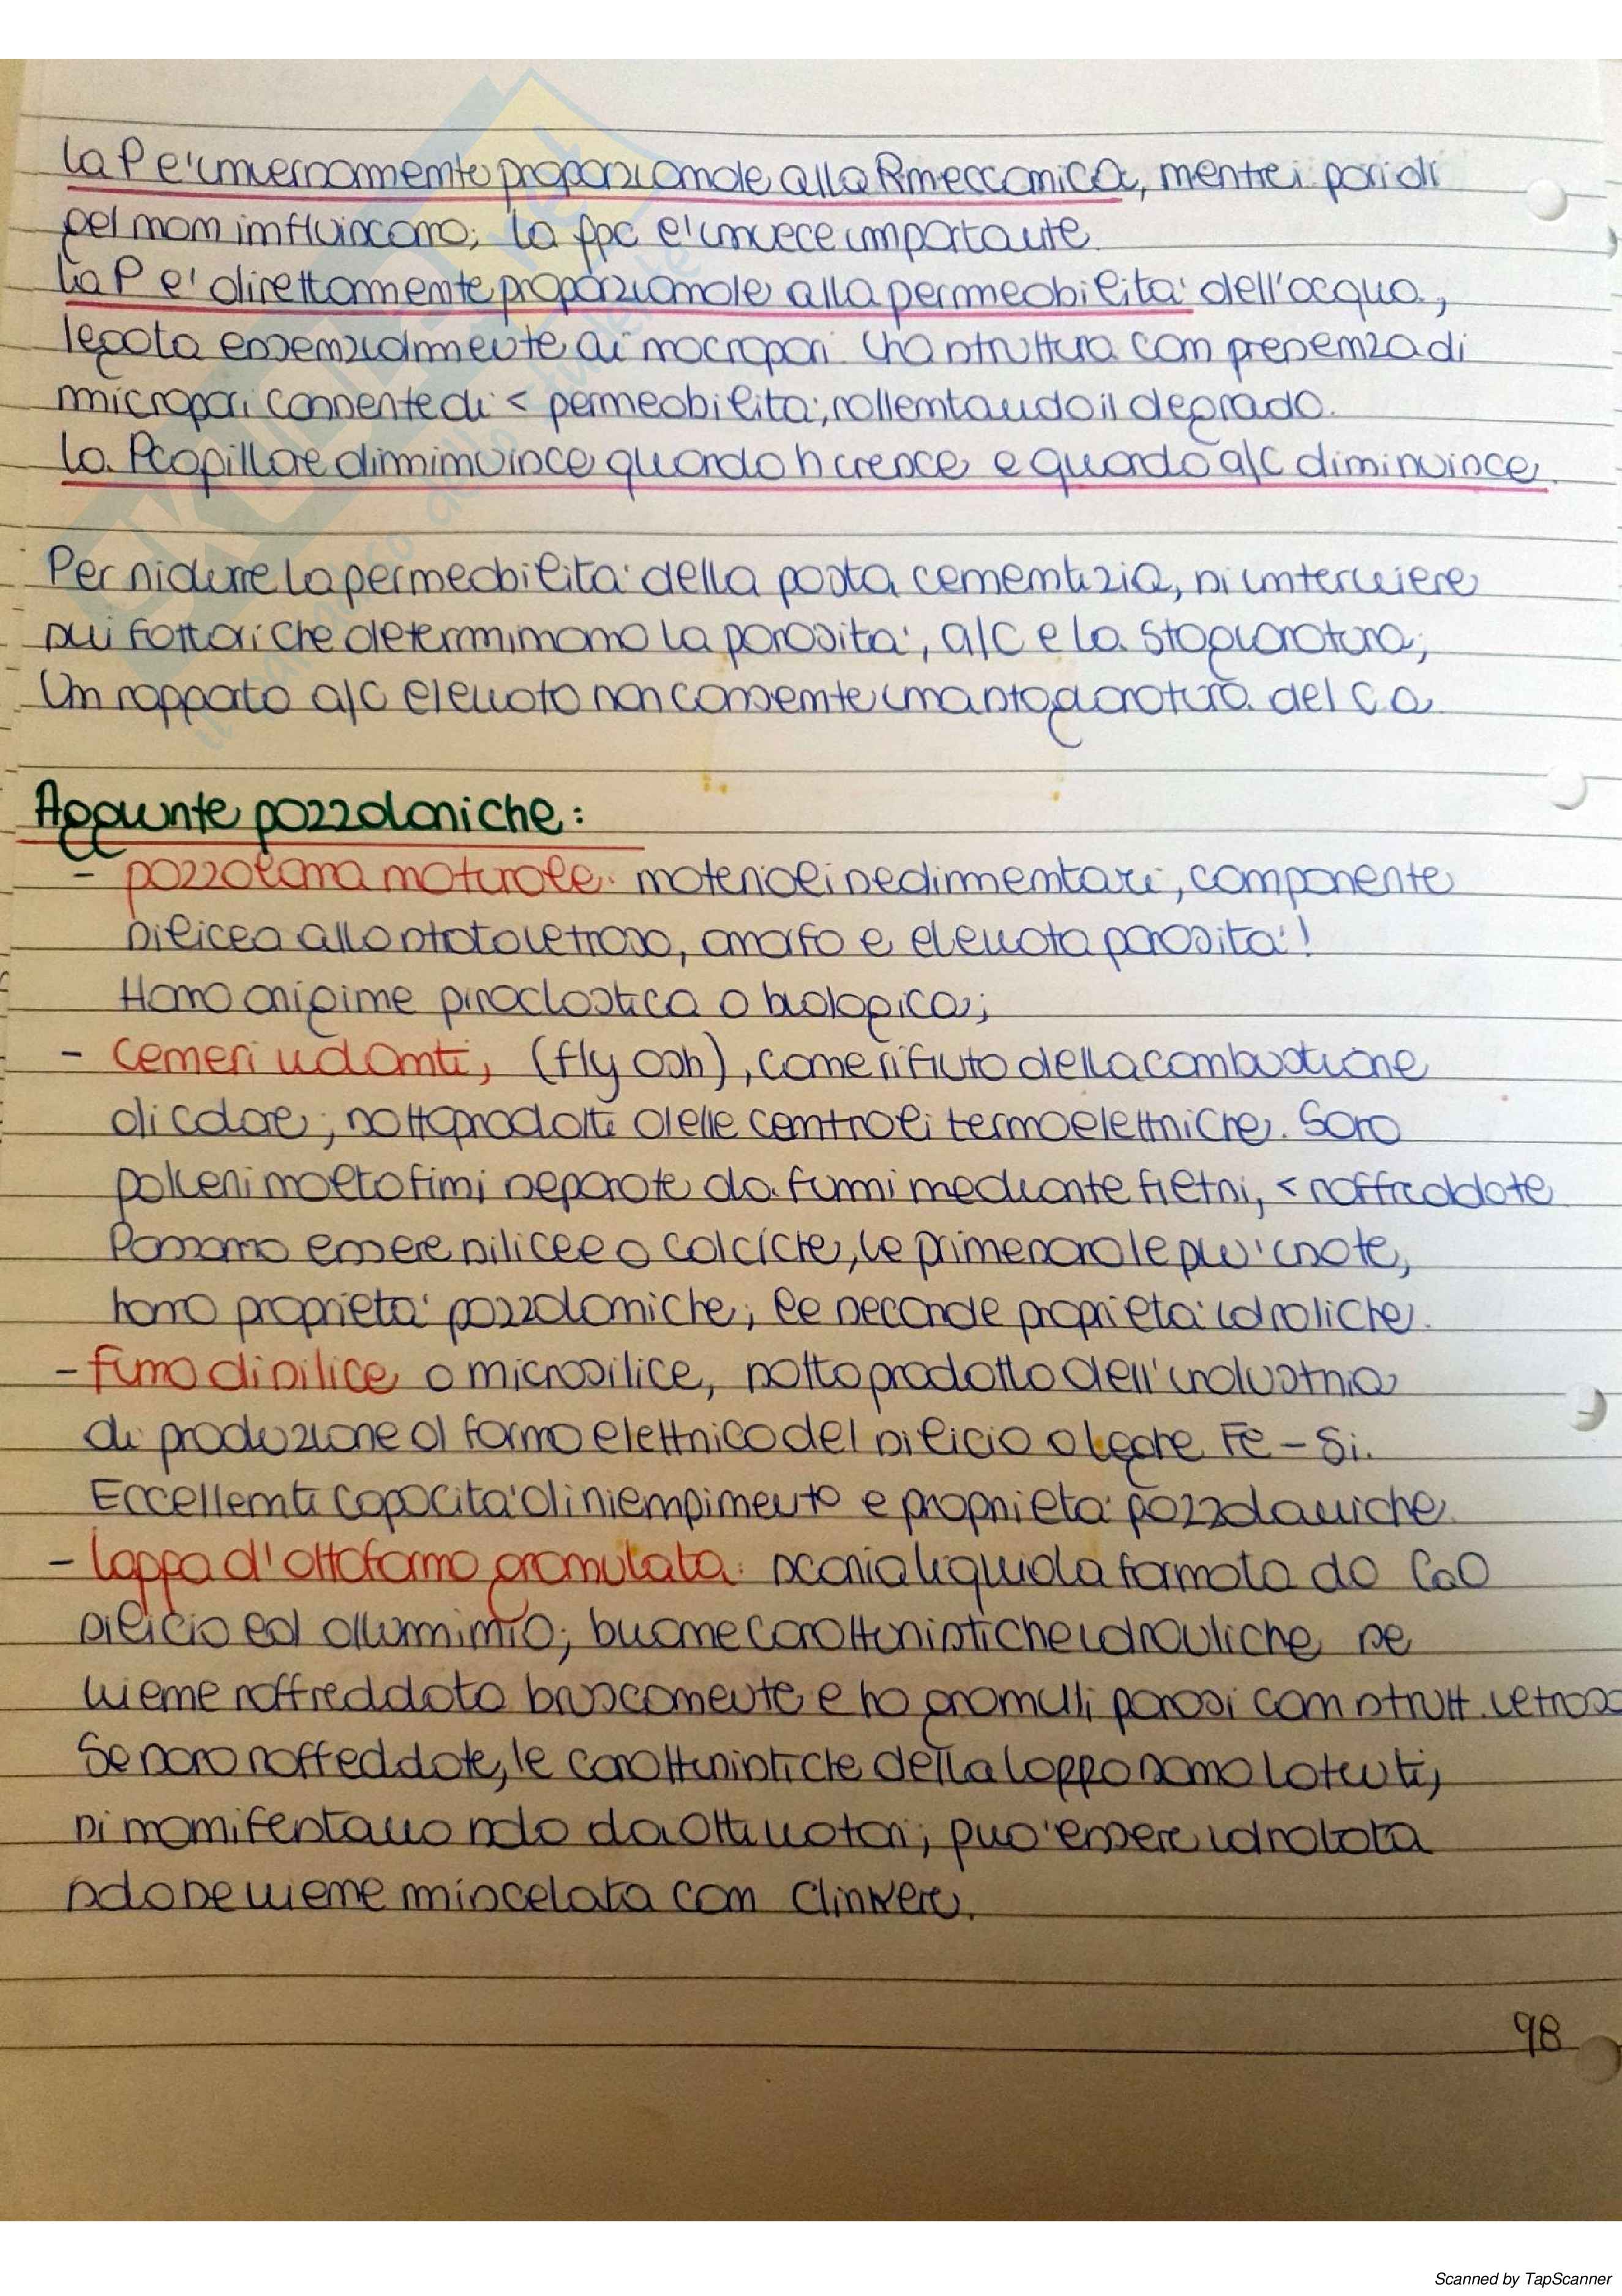 La P e' inversamente proporzionale alla R meccanica, mentre i pori di
gel non influiscono; la fpc e' invece importante.
La P e' direttamente proporzionale alla permeabilita' dell'acqua,
legata essenzialmente ai macropori. Una struttura con presenza di
micropori consente di < permeabilita', rallentando il degrado.
La P capillare diminuisce quando h cresce e quando a/c diminuisce.
Per ridurre la permeabilita' della pasta cementizia, si interviene
sui fattori che determinano la porosita', a/c e la stagionatura;
Un rapporto a/c elevato non consente una stagionatura del ca.
Aggiunte pozzolaniche:
- pozzolana naturale: materiali sedimentari, componente
silicea allo stato vetroso, amorfo e elevata porosita'!
Hanno origine piroclastica o biologica;
- ceneri volanti, (fly ash), come rifiuto della combustione
di carbone; sottoprodotti delle centrali termoelettriche. Sono
polveri molto fini separate da fumi mediante filtri, < raffreddate
Possono essere silicee o calciche, le prime sono le piu' usate,
hanno proprieta' pozzolaniche; le seconde proprieta' idrauliche.
- fumo di silice o microsilice, sottoprodotto dell'industria
di produzione al forno elettrico del silicio o leghe Fe-Si.
Eccellenti capacita' di riempimento e proprieta' pozzolaniche.
- loppa d'altoforno granulata: scoria liquida formata da CaO
silicio ed alluminio; buone caratteristiche idrauliche se
viene raffreddato bruscamente e ha granuli porosi con strutt. vetrosa
Se sono raffeddate, le caratteristiche della loppa sono latenti,
si manifestano solo da attivatori; puo' essere idratata
solo se viene miscelata con clinker.
98
Scanned by TapScanner